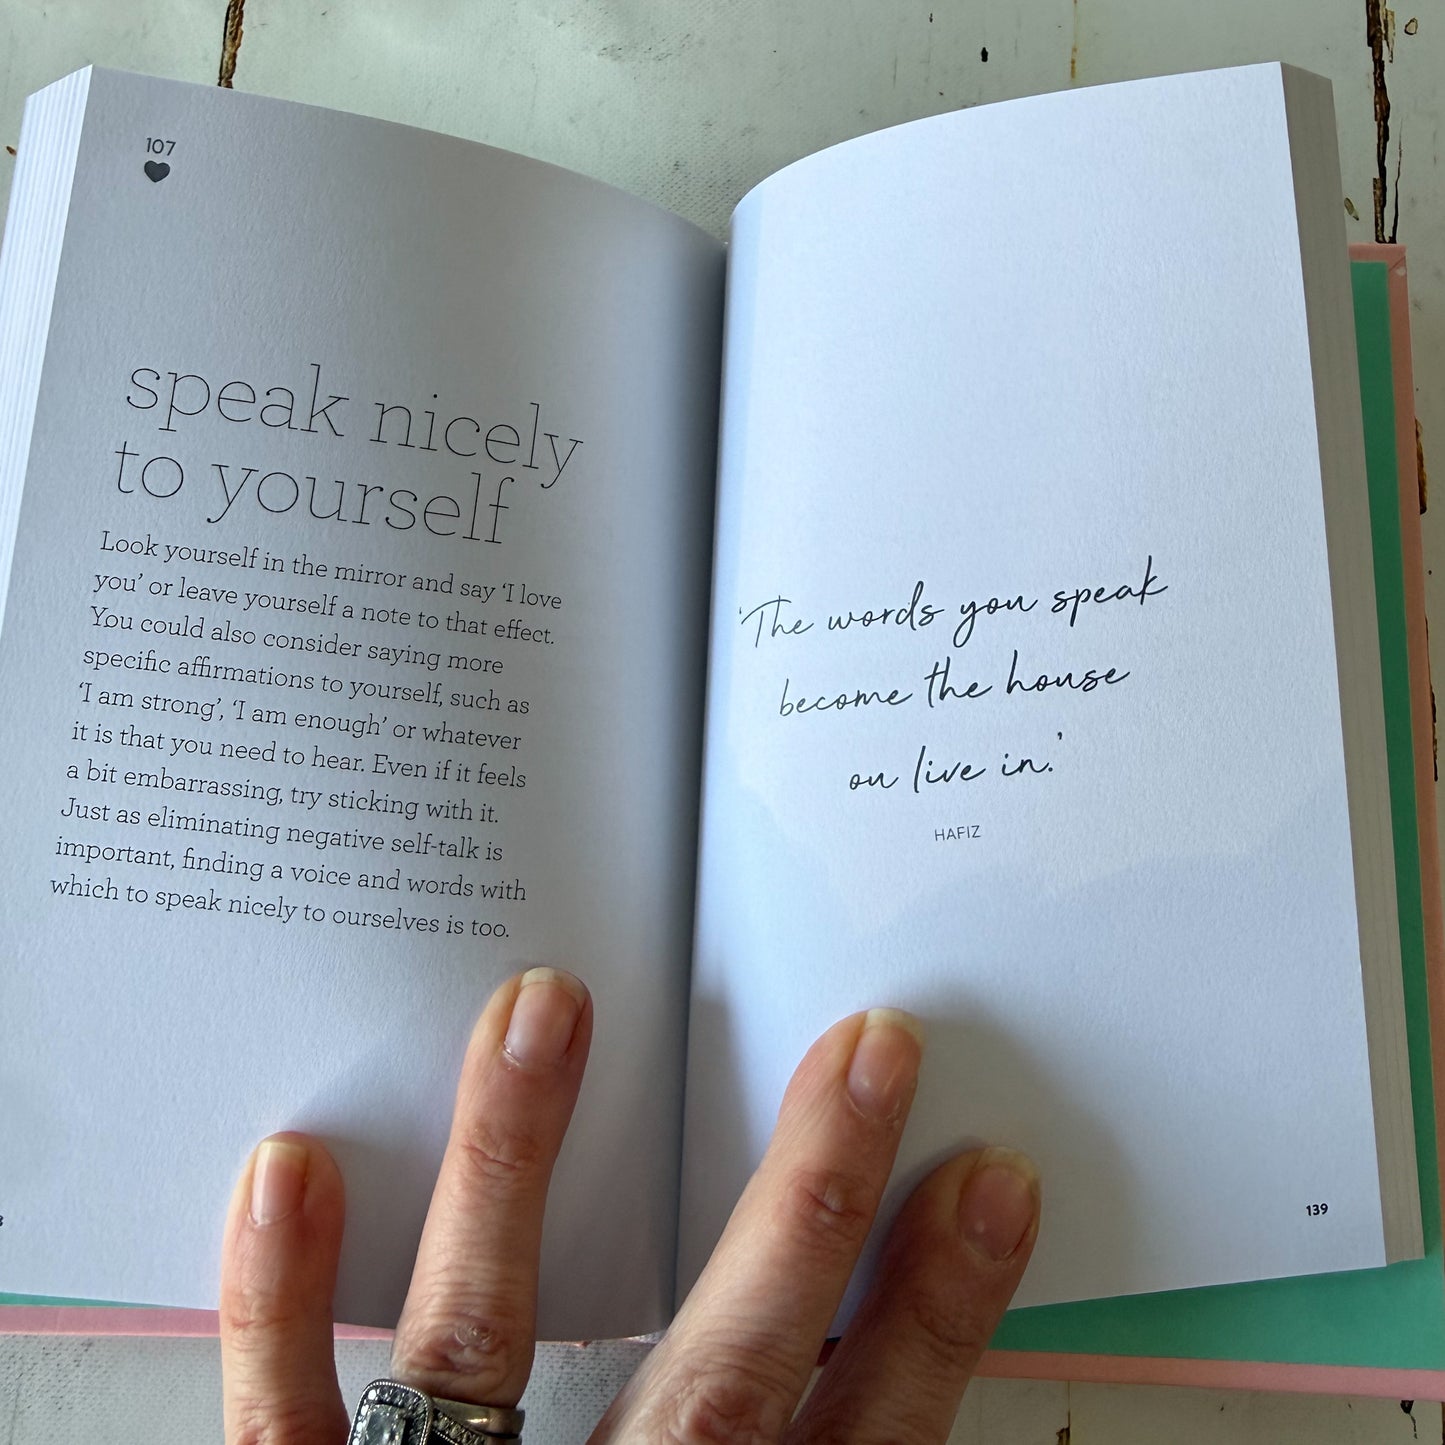 107
speak nicely
to yourself
Look yourself in the mirror and say ‘I love
you’ or leave yourself a note to that effect.
You could also consider saying more
specific affirmations to yourself, such as
‘I am strong’, ‘I am enough’ or whatever
it is that you need to hear. Even if it feels
a bit embarrassing, try sticking with it.
Just as eliminating negative self-talk is
important, finding a voice and words with
which to speak nicely to ourselves is too.
‘The words you speak
become the house
ou live in.’
HAFIZ
139